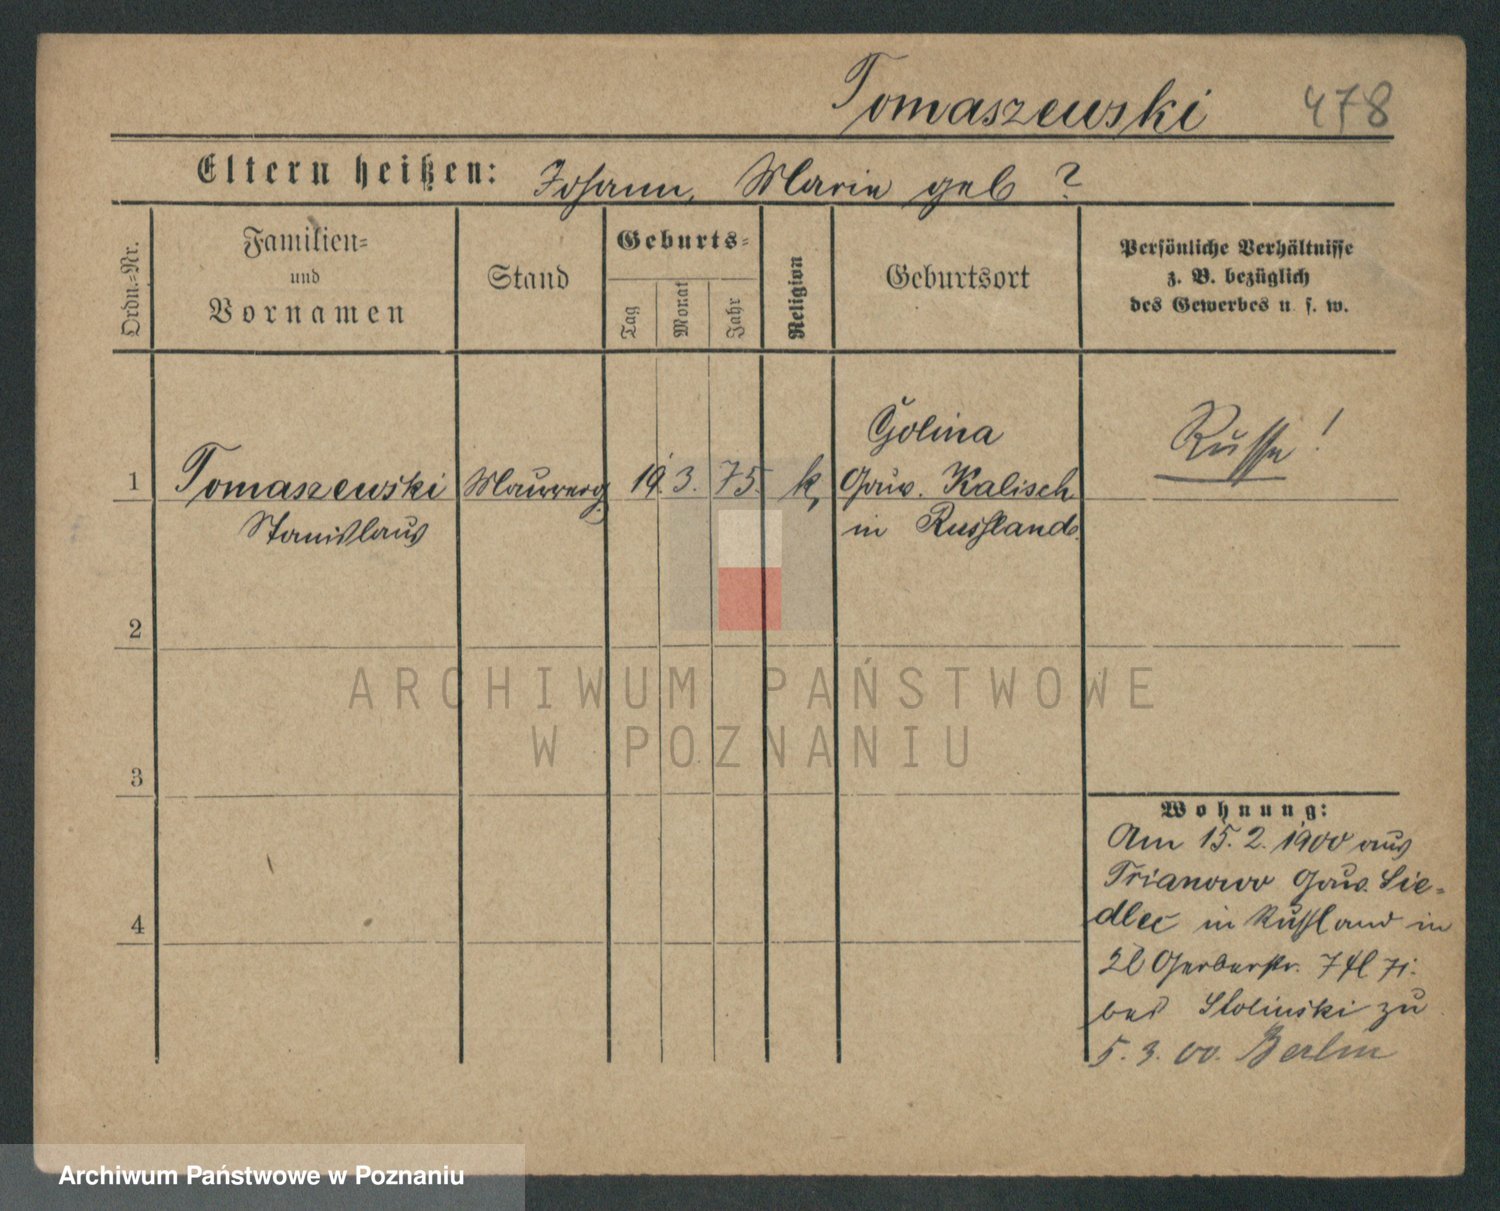 Tomaszewski 478
Eltern heißen: Johann, Marie geb ?
Ordn.-Nr.
Familien-
und
Vornamen
Stand
Geburts-
Tag
Monat
Jahr
Religion
Geburtsort
Persönliche Verhältnisse
z. B. bezüglich
des Gewerbes u. s. w.
Golina
Russe!
1 Tomaszewski 19. 3. 75. k. Gouv. Kalisch
Stanislaus in Russland.
2
ARCHIWUM PAŃSTWOWE
W POZNANIU
3
Wohnung:
Am 15. 2. 1900 aus
Trianowo Gouv. Sie-
4
dlec in Russland in
Gerberstr. 7
bei Slolinski zu
5. 3. 00. Berlin
Archiwum Państwowe w Poznaniu